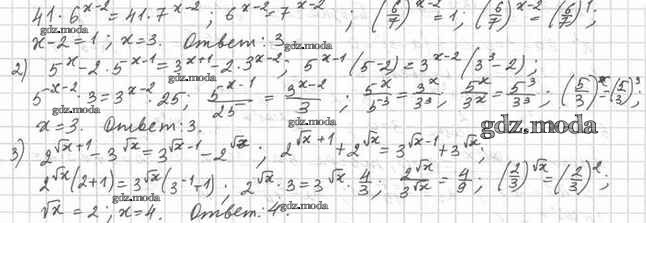 41·6^(x-2) = 41·7^(x-2); 6^(x-2) = 7^(x-2); (6/7)^(x-2) = 1; (6/7)^(x-2) = (6/7)^1;
x-2=1; x=3. Ответ: 3.
gdz.moda gdz.moda
2) 5^x - 2·5^(x-1) = 3^(x+1) - 2·3^(x-2); 5^(x-1)(5-2) = 3^(x-2)(3^3-2);
gdz.moda
5^(x-2)·3 = 3^(x-2)·25; 5^(x-1)/25 = 3^(x-2)/3; 5^x/5^3 = 3^x/3^3; 5^x/3^x = 5^3/3^3; (5/3)^x = (5/3)^3;
gdz.moda gdz.moda
x=3. Ответ: 3.
gdz.moda
3) 2^(√x+1) - 3^(√x) = 3^(√x-1) - 2^(√x); 2^(√x+1) + 2^(√x) = 3^(√x-1) + 3^(√x);
2^(√x)(2+1) = 3^(√x)(3^(-1)+1); 2^(√x)·3 = 3^(√x)·4/3; 2^(√x)/3^(√x) = 4/9; (2/3)^(√x) = (2/3)^2;
gdz.moda
√x = 2; x=4. Ответ: 4.
gdz.moda